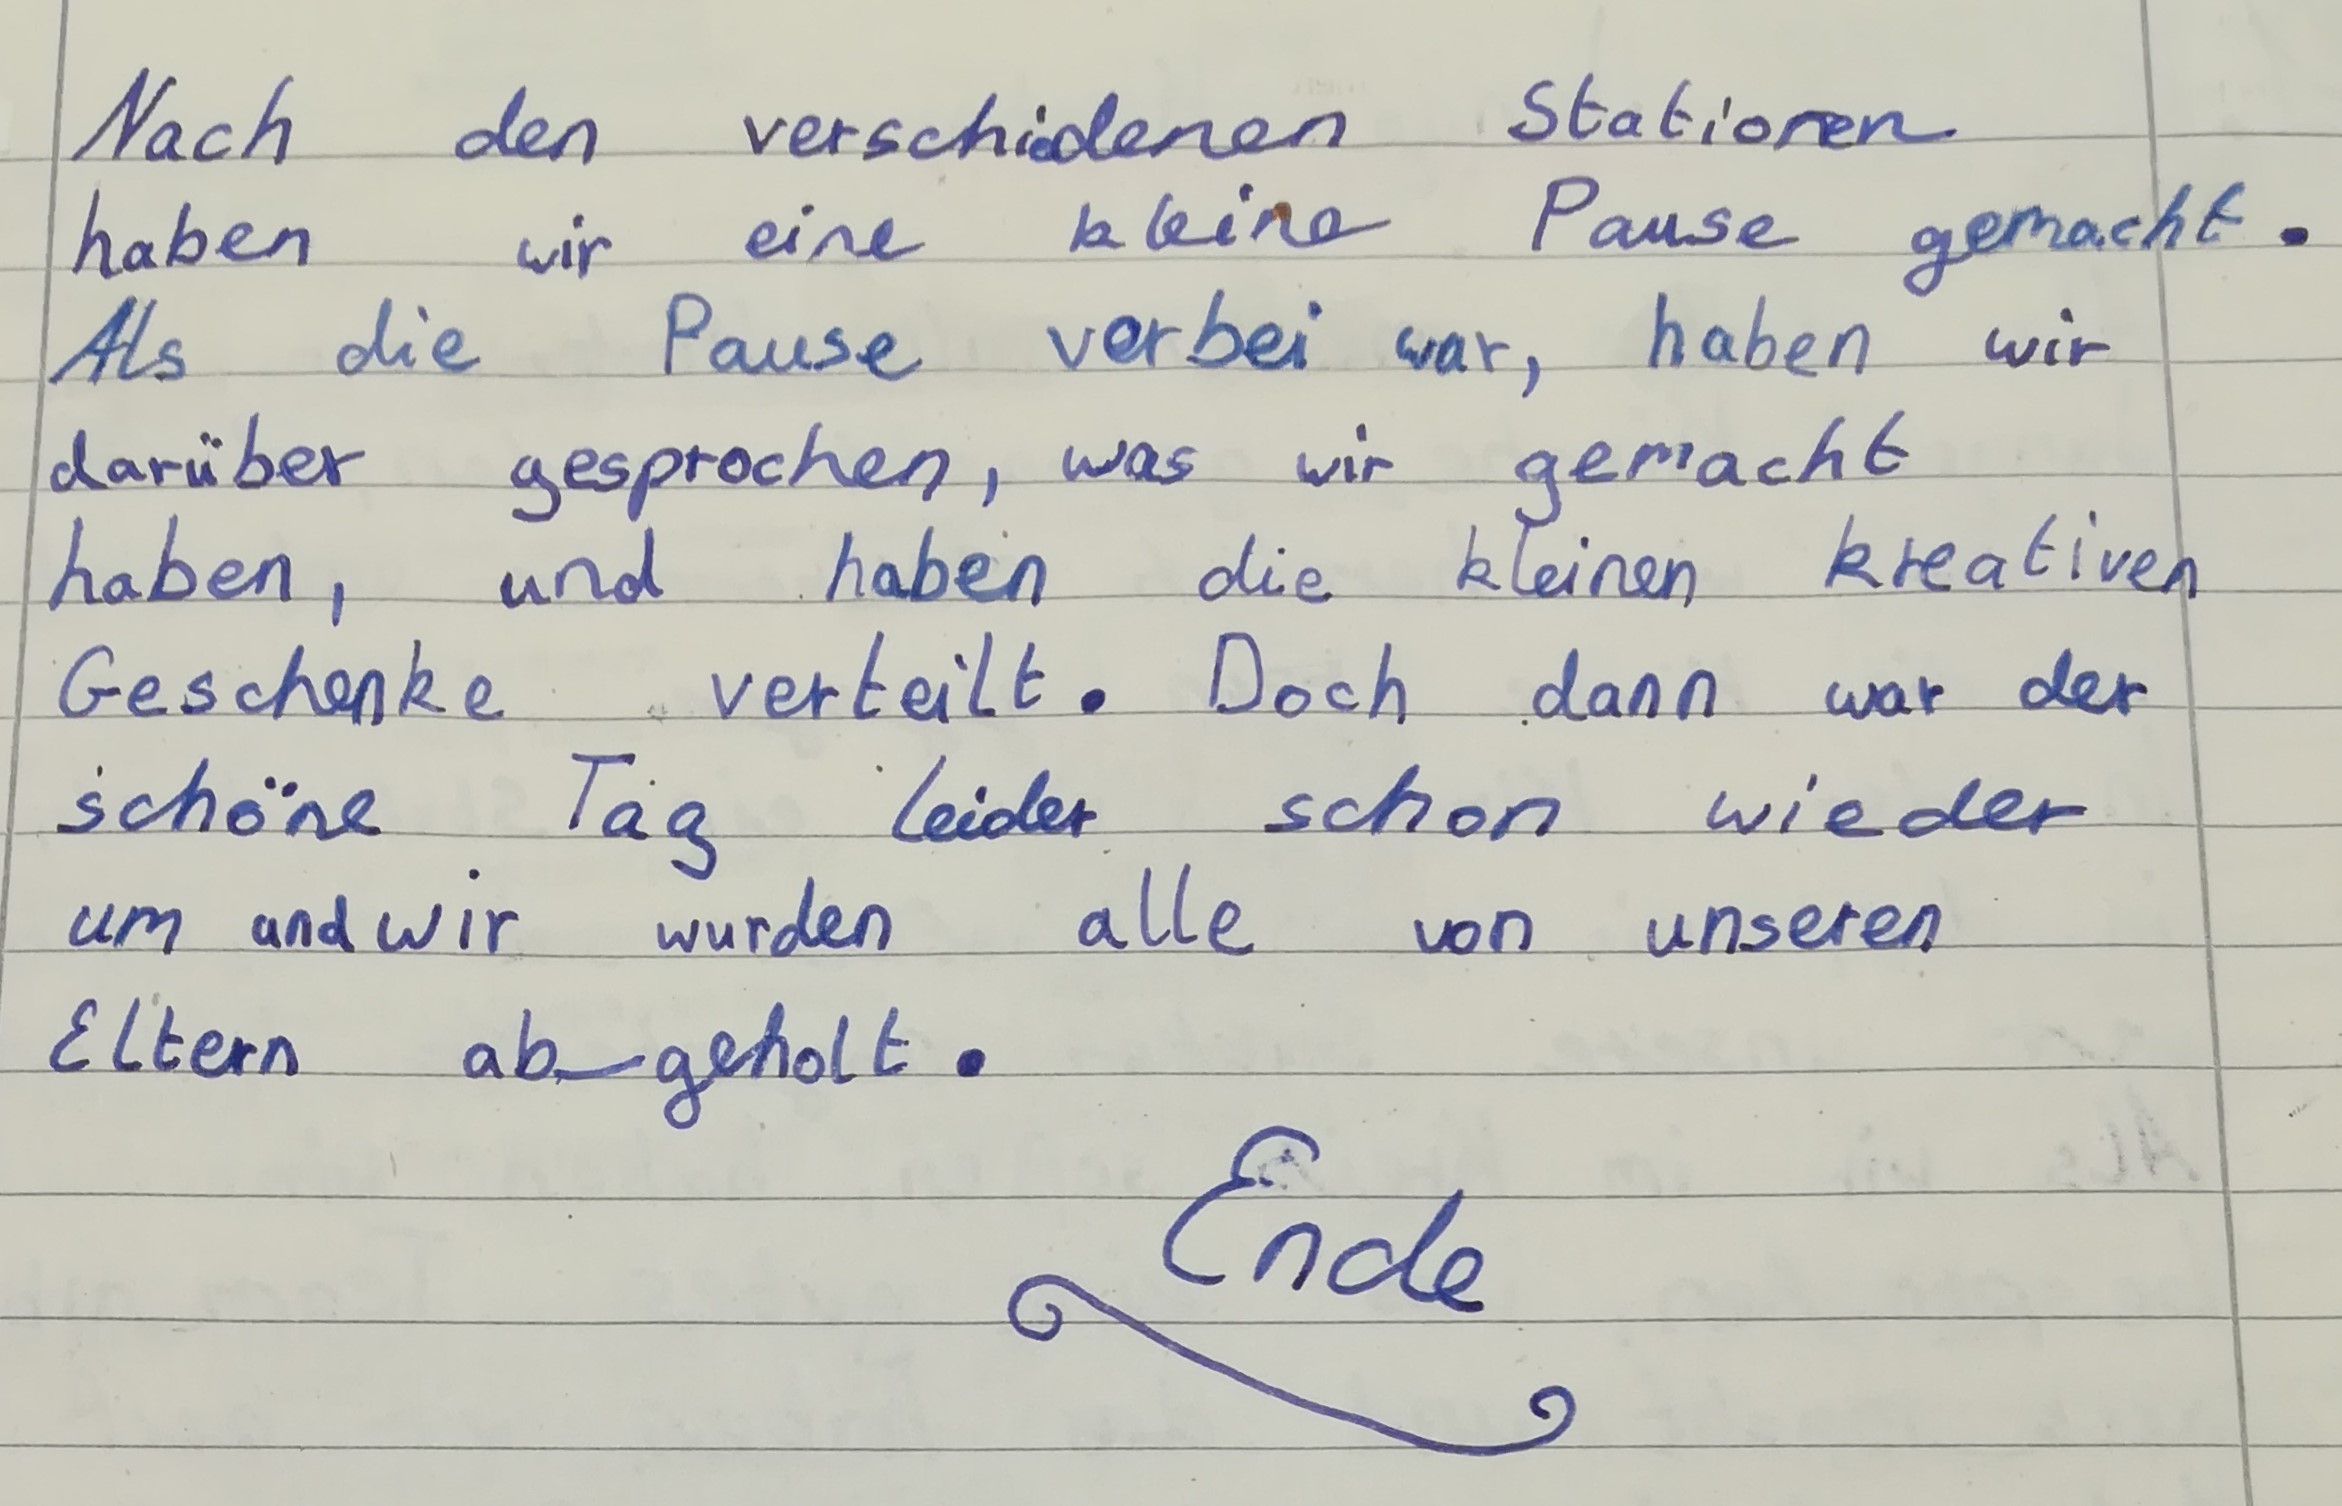 Nach den verschiedenen Stationen
haben wir eine kleine Pause gemacht.
Als die Pause vorbei war, haben wir
darüber gesprochen, was wir gemacht
haben, und haben die kleinen kreativen
Geschenke verteilt. Doch dann war der
schöne Tag leider schon wieder
um und wir wurden alle von unseren
Eltern ab_geholt.
Ende